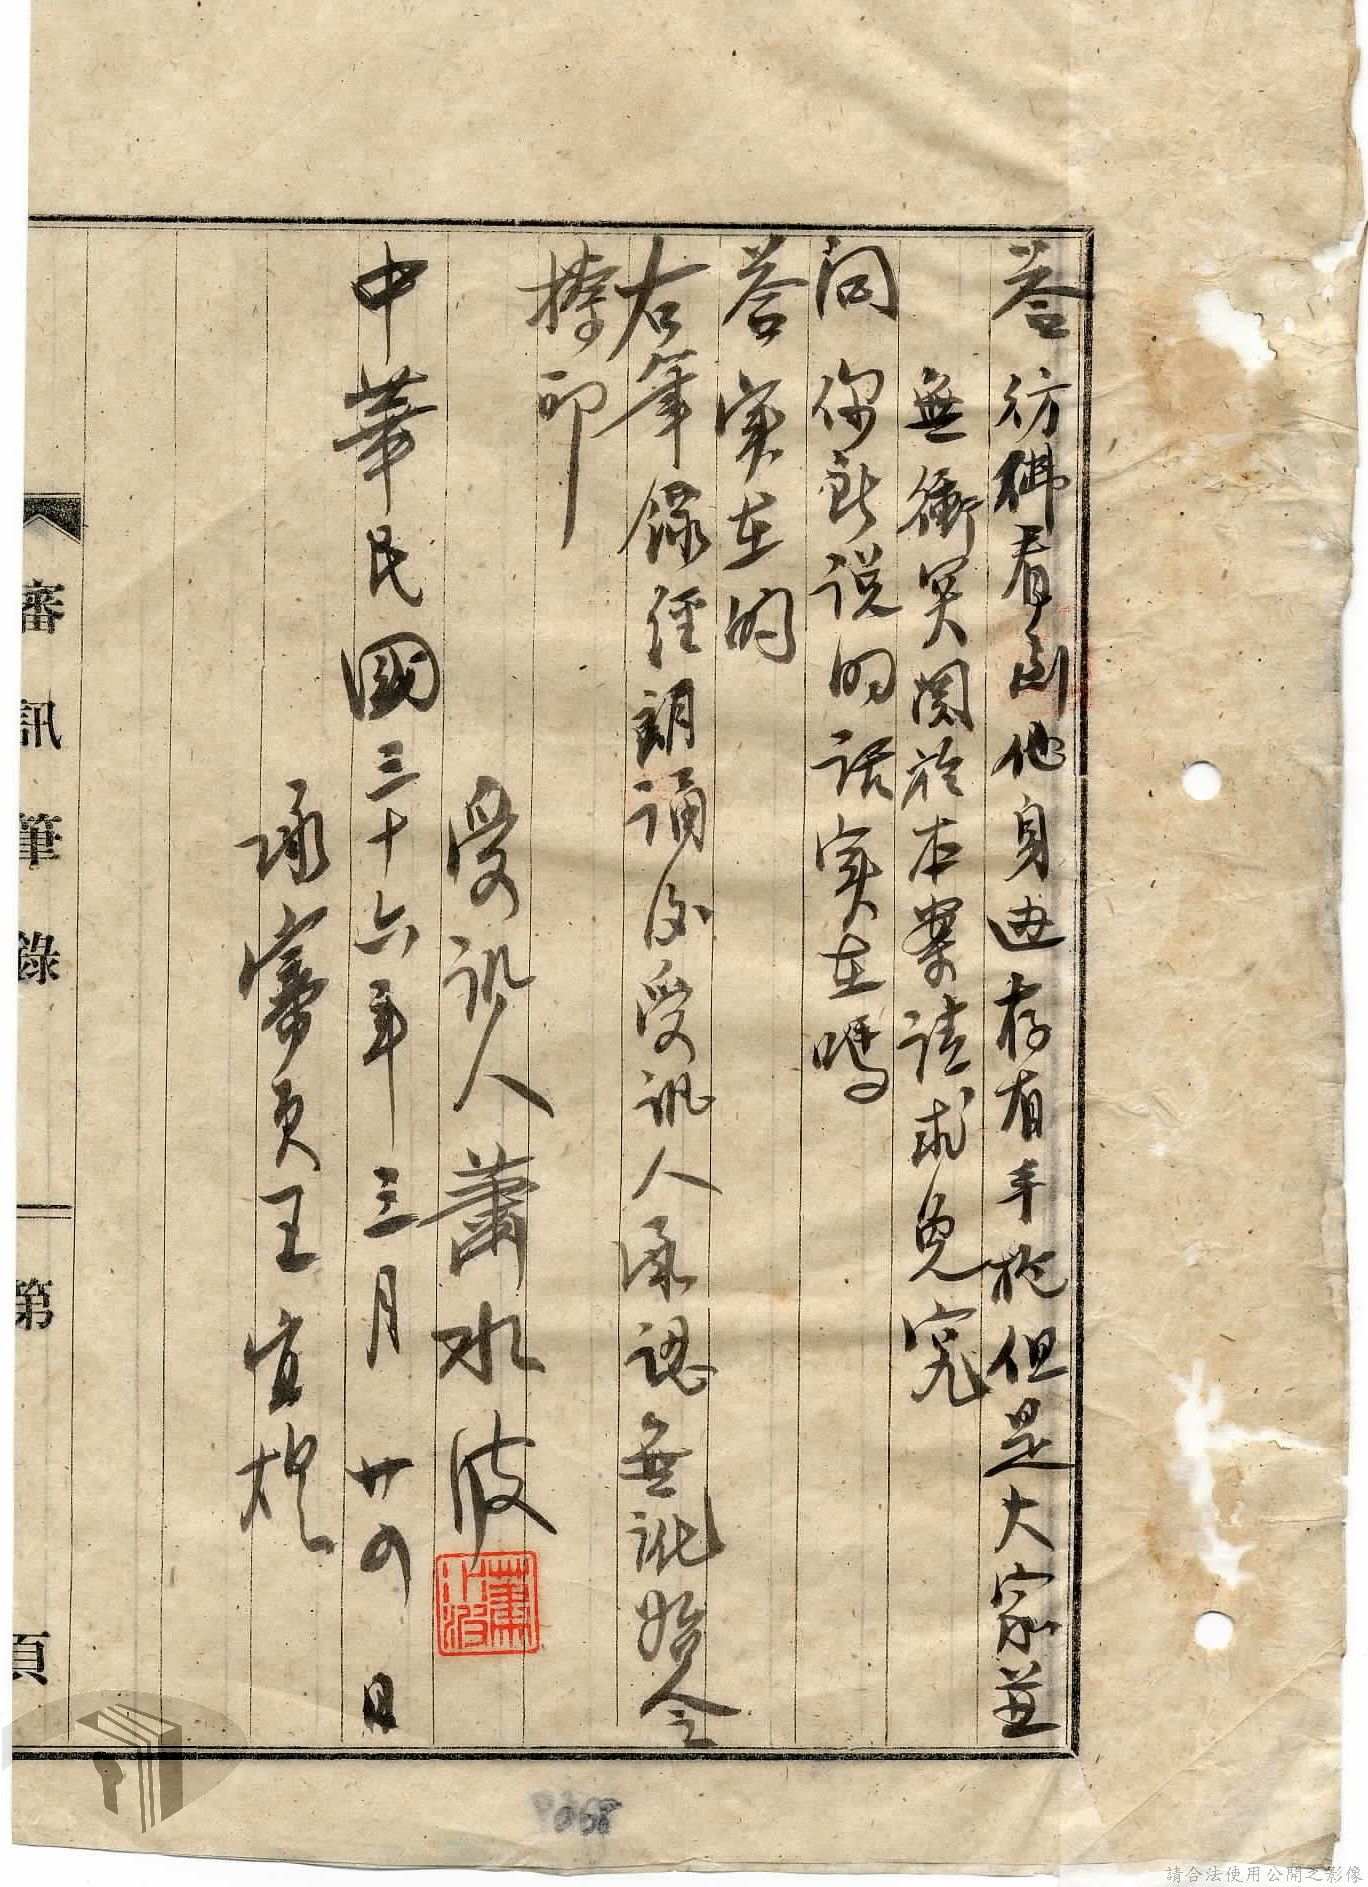 答 彷彿看到他身边存有手枪但是大家並
無衝突関於本案請求免究
問 你所説的話実在嗎
答 実在的
右筆錄經朗诵後受訊人承認無訛始令
捺印
受訊人蕭水波
中華民國三十六年三月廿四日
承審員王宜
審訊筆錄 第 頁
請合法使用公開之影像